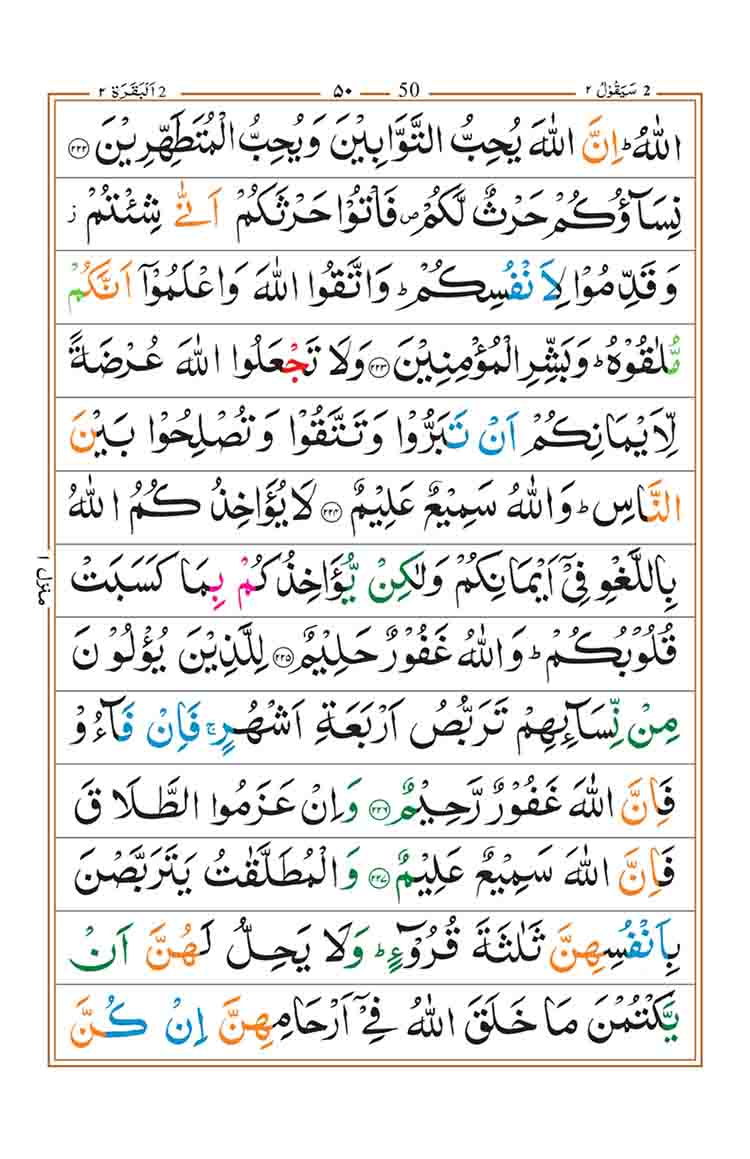 2 سَيَقُوْلُ ٢ 50 ٥٠ 2 اَلْبَقَرَة ٢
اللّٰهُ ؕ اِنَّ اللّٰهَ يُحِبُّ التَّوَّابِيْنَ وَيُحِبُّ الْمُتَطَهِّرِيْنَ ﴿۲۲۲﴾
نِسَآؤُكُمْ حَرْثٌ لَّكُمْ ۪ فَاْتُوْا حَرْثَكُمْ اَنّٰى شِئْتُمْ ؗ
وَ قَدِّمُوْا لِاَنْفُسِكُمْ ؕ وَاتَّقُوا اللّٰهَ وَاعْلَمُوْٓا اَنَّكُمْ
مُّلٰقُوْهُ ؕ وَبَشِّرِ الْمُؤْمِنِيْنَ ﴿۲۲۳﴾ وَلَا تَجْعَلُوا اللّٰهَ عُرْضَةً
لِّاَيْمَانِكُمْ اَنْ تَبَرُّوْا وَتَتَّقُوْا وَتُصْلِحُوْا بَيْنَ
النَّاسِ ؕ وَاللّٰهُ سَمِيْعٌ عَلِيْمٌ ﴿۲۲۴﴾ لَا يُؤَاخِذُ كُمُ اللّٰهُ
بِاللَّغْوِ فِىْٓ اَيْمَانِكُمْ وَلٰكِنْ يُّؤَاخِذُكُمْ بِمَا كَسَبَتْ
قُلُوْبُكُمْ ؕ وَاللّٰهُ غَفُوْرٌ حَلِيْمٌ ﴿۲۲۵﴾ لِلَّذِيْنَ يُؤْلُوْنَ
مِنْ نِّسَآئِهِمْ تَرَبُّصُ اَرْبَعَةِ اَشْهُرٍ ۚ فَاِنْ فَآءُوْ
فَاِنَّ اللّٰهَ غَفُوْرٌ رَّحِيْمٌ ﴿۲۲۶﴾ وَاِنْ عَزَمُوا الطَّلَاقَ
فَاِنَّ اللّٰهَ سَمِيْعٌ عَلِيْمٌ ﴿۲۲۷﴾ وَالْمُطَلَّقٰتُ يَتَرَبَّصْنَ
بِاَنْفُسِهِنَّ ثَلٰثَةَ قُرُوْٓءٍ ؕ وَلَا يَحِلُّ لَهُنَّ اَنْ
يَّكْتُمْنَ مَا خَلَقَ اللّٰهُ فِىْٓ اَرْحَامِهِنَّ اِنْ كُنَّ
منزل ١